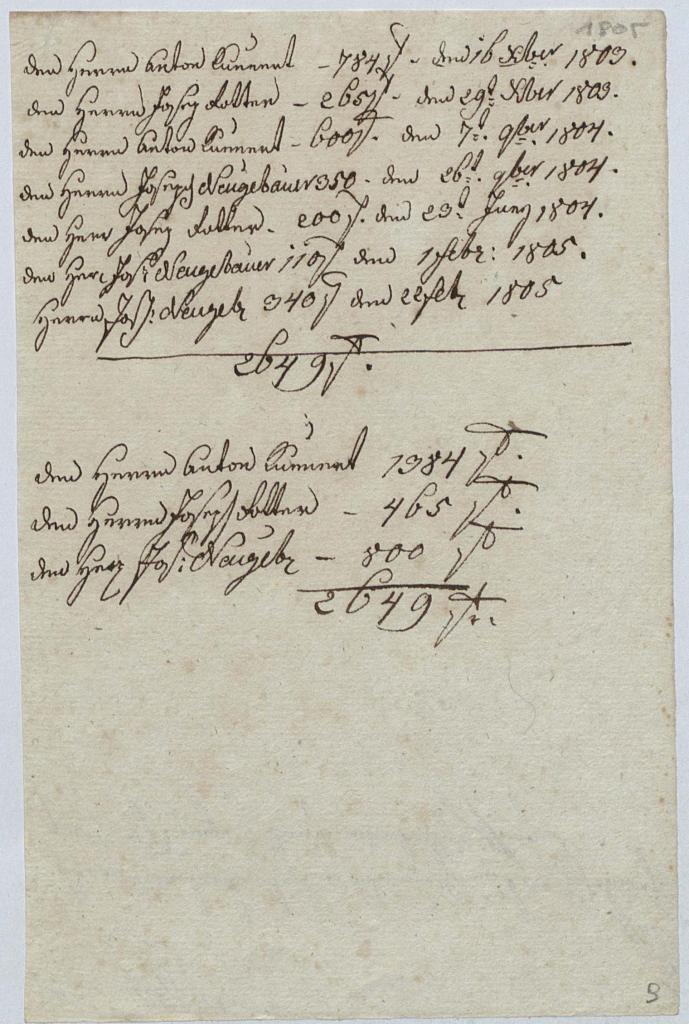 1805
den Herrn Anton Kunnert - 784 f - den 16 Xber 1803.
den Herrn Josep Rotter - 265 f - den 29t. Xber 1803.
den Herrn Anton Kunnert - 600 f. den 7t. 9ber 1804.
den Herrn Joseph Neugebauer 350 - den 26t. 9ber 1804.
den Herr Josep Rotter - 200 f. den 23t Juny 1804.
den Herr Jos: Neugebauer 110 f den 1 febr: 1805.
Herrn Jos: Neugebr 340 f den 22 feb 1805
2649 f.
den Herrn Anton Kunnert 1384 f.
den Herrn Joseph Rotter - 465 f.
den Herr Jos: Neugebr - 800 f
2649 fr.
3